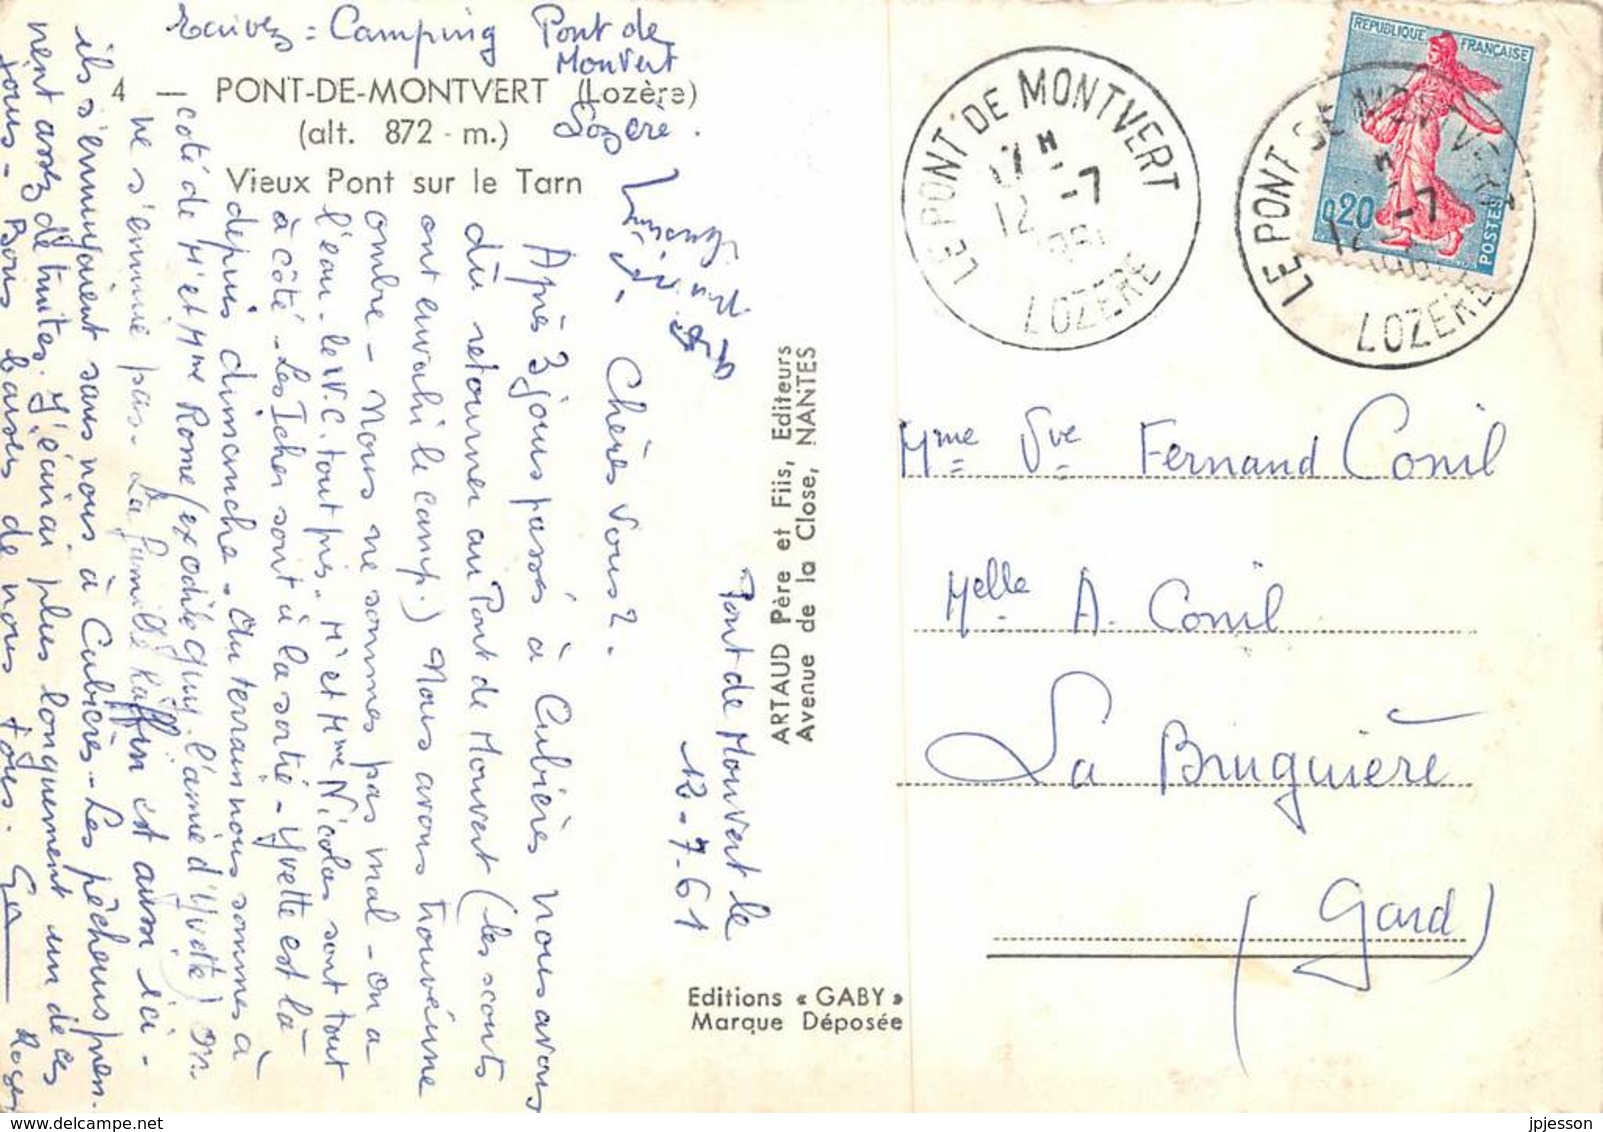 Ecrivez = Camping Pont de
Monvert
Lozère.
4 — PONT-DE-MONTVERT (Lozère)
(alt. 872 m.)
Vieux Pont sur le Tarn
ARTAUD Père et Fils, Editeurs
Avenue de la Close, NANTES
Editions « GABY »
Marque Déposée
Pont de Monvert le
12-7-61
Chères Vous 2.
Après 3 jours passés à Cubières nous avons
dû retourner au Pont de Monvert (les scouts
ont envahi le camp.) Nous avons trouvé une
ombre - Nous ne sommes pas mal - On a
l'eau - le W.C. tout près. Mr et Mme Nicolas sont tout
à côté - Les Icher sont à la sortie - Yvette est là
depuis dimanche. Au terrain nous sommes à
coté de Mr et Mme Rome (ex Odile Guy, l'amie d'Yvette) On
ne s'ennuie pas - La famille est aussi ici -
ils s'ennuyaient sans nous à Cubières - Les pêcheurs pren
nent assez de truites. J'écrirai plus longuement un de ces
jours - Bons baisers de nous tous.
Roger
REPUBLIQUE FRANÇAISE
0,20
POSTES
LE PONT DE MONTVERT
17 H
12 -7
1961
LOZERE
LE PONT DE MONTVERT
12 -7
LOZERE
Mme Vve Fernand Conil
Melle A. Conil
La Bruguière
(Gard)
jpjesson